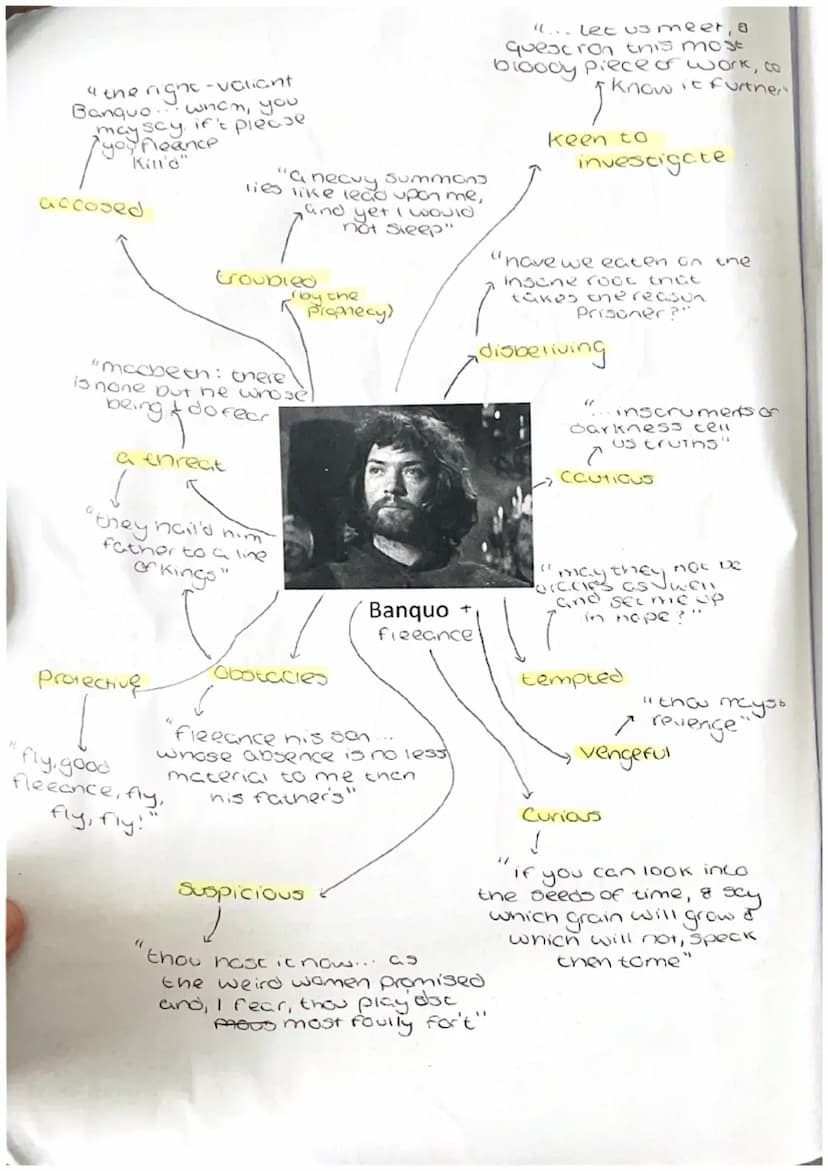 "... let us meet, &
question this most
bloody piece of work, to
know it further
keen to
investigate
"the right-valiant
Banquo... whom, you
may say, if't please
you, fleance
kill'd"
accosed
"a heavy summons
lies like lead upon me,
and yet I would
not sleep"
troubled
(by the
prophecy)
"have we eaten on the
insane root that
takes the reason
prisoner?"
disbeliving
"macbeth: there
is none but he whose
being I do fear
a threat
"they hail'd him
father to a line
of kings"
"... instruments of
darkness tell
us truths"
cautious
"may they not be
oracles as well
and set me up
in hope?"
tempted
Banquo +
fleeance
protective
"fly, good
fleeance, fly,
fly, fly!"
obstacles
"fleeance his son...
whose absence is no less
material to me then
his father's"
"thou mayst
revenge"
vengeful
curious
"if you can look into
the seeds of time, & say
which grain will grow &
which will not, speak
then to me"
suspicious
"thou hast it now... as
the weird women promised
and, I fear, thou play'dst
most foully for't"